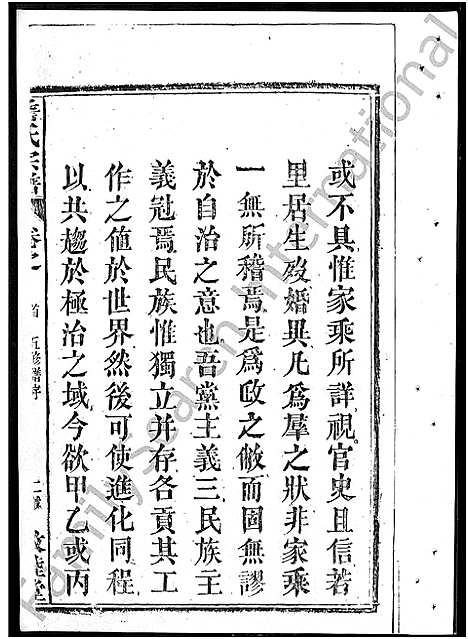 或不具惟家乘所詳視官史且信若
里居生歿婚異凡爲羣之狀非家乘
一無所稽焉是爲政之敝而固無謬
於自治之意也吾黨主義三民族主
義冠焉民族惟獨立并存各貢其工
作之値於世界然後可使進化同程
以共趨於極治之域今欲甲乙或丙
氏宗譜
卷之
首 五修譜序
Family Search International